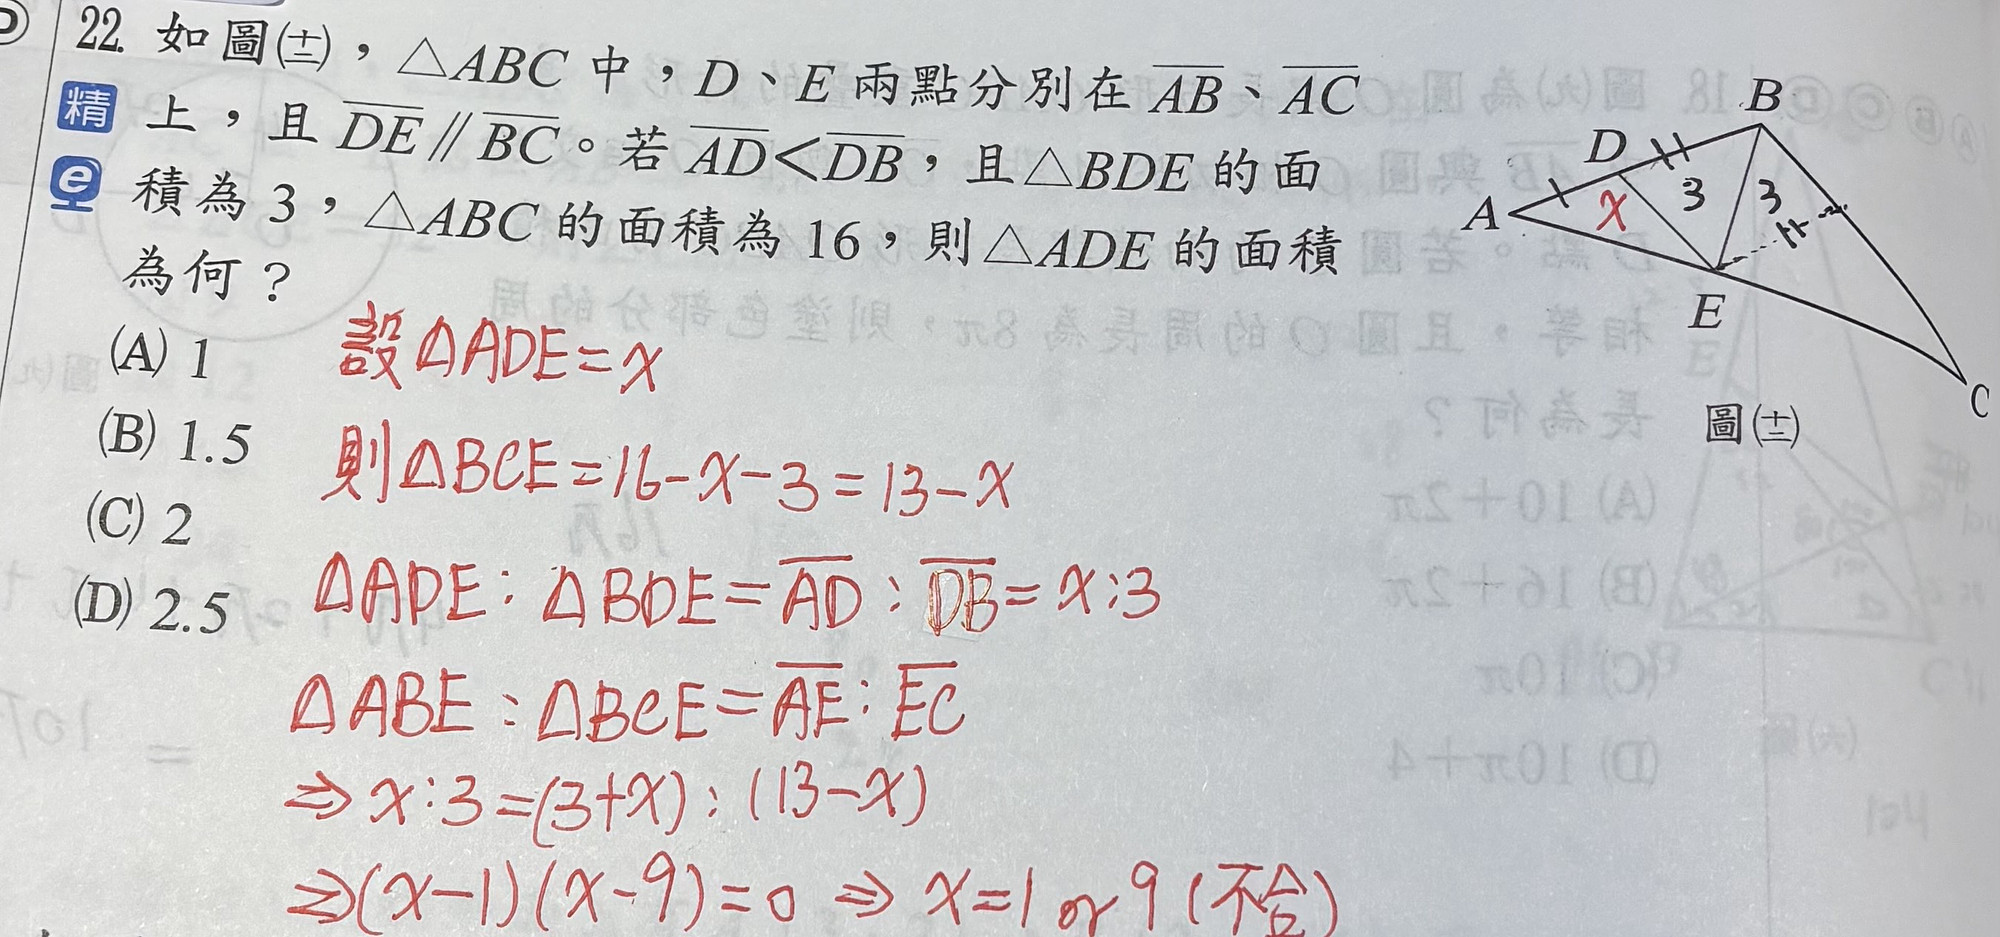 22. 如圖(十二)，△ABC 中，D、E 兩點分別在 AB、AC
精 上，且 DE // BC。若 AD＜DB，且△BDE 的面
e 積為 3，△ABC 的面積為 16，則△ADE 的面積
為何？
(A) 1
(B) 1.5
(C) 2
(D) 2.5
設△ADE=x
則△BCE=16-x-3=13-x
△ADE：△BDE=AD：DB=x:3
△ABE：△BCE=AE：EC
⇒ x:3=(3+x)：(13-x)
⇒(x-1)(x-9)=0 ⇒ x=1 or 9 (不合)
B
D
A
x
3
3
E
C
圖(十二)